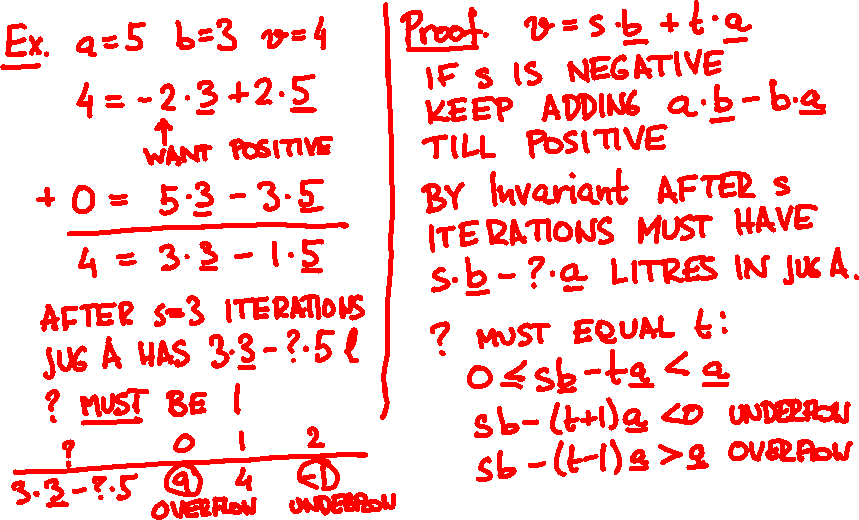 Ex. a=5 b=3 v=4
4 = -2·3 + 2·5
↑
WANT POSITIVE
+ 0 = 5·3 - 3·5
4 = 3·3 - 1·5
AFTER s=3 ITERATIONS
JUG A HAS 3·3-?·5 l
? MUST BE 1
? 0 1 2
3·3-?·5 9 4 -1
OVERFLOW UNDERFLOW
Proof. v = s·b + t·a
IF s IS NEGATIVE
KEEP ADDING a·b - b·a
TILL POSITIVE
BY Invariant AFTER s
ITERATIONS MUST HAVE
s·b - ?·a LITRES IN JUG A.
? MUST EQUAL t:
0 ≤ sb - ta < a
sb - (t+1)a < 0 UNDERFLOW
sb - (t-1)a > a OVERFLOW